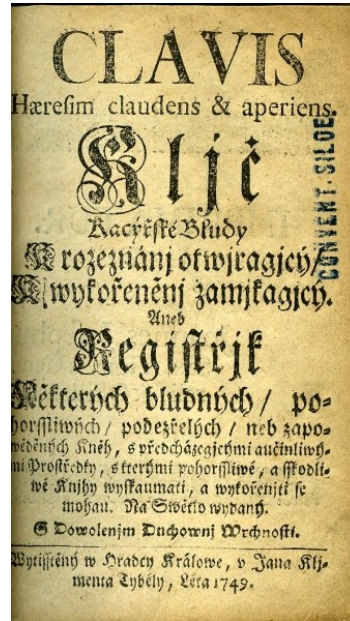 CLAVIS
Hæresim claudens & aperiens.
Kljč
Kacýřské Bludy
K rozeznánj otwjragjcý/
K wykořeněnj zamjkagjcý.
Aneb
Registřjk
Některých bludných / po-
horssliwých / podezřelých / neb zapo-
wěděných Kněh, s předcházegjcými aučinliwý-
mi Prostředky, s kterými pohorssliwé, a sskodli-
wé Knjhy wyskaumati, a wykořeniti se
mohau. Na Swětlo wydaný.
S Dowolenjm Duchownj Wrchnosti.
Wytisstěný w Hradcy Králowe, v Jana Klj-
menta Tybély, Léta 1749.
CONVENT·SILOE